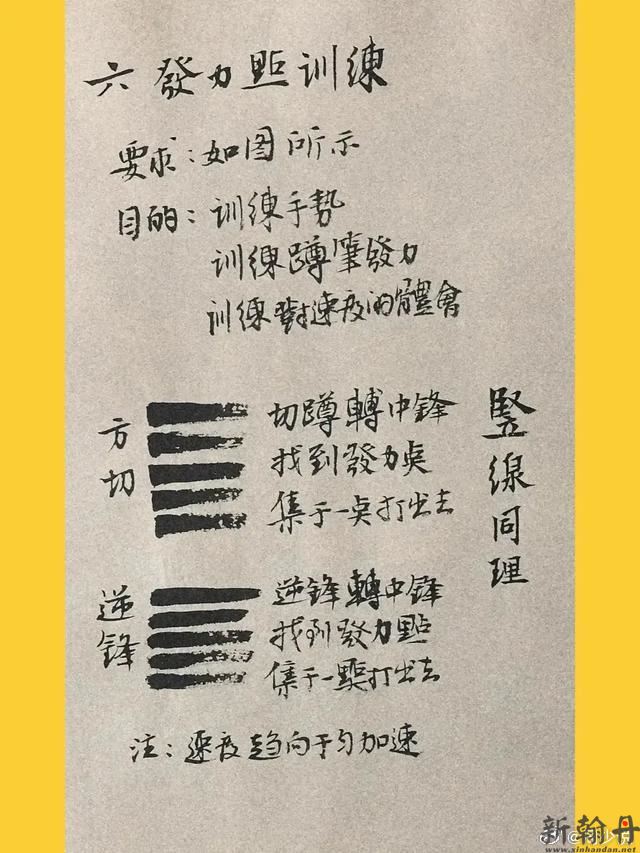 六 發力點训練
要求：如图所示
目的：训練手势
训練蹲筆發力
训練對速度的體會
方切
切蹲轉中鋒
找到發力点
集于一点打出去
逆鋒
逆鋒轉中鋒
找到發力點
集于一點打出去
竖線同理
注：速度趋向于匀加速
新翰丹
www.xinhandan.net